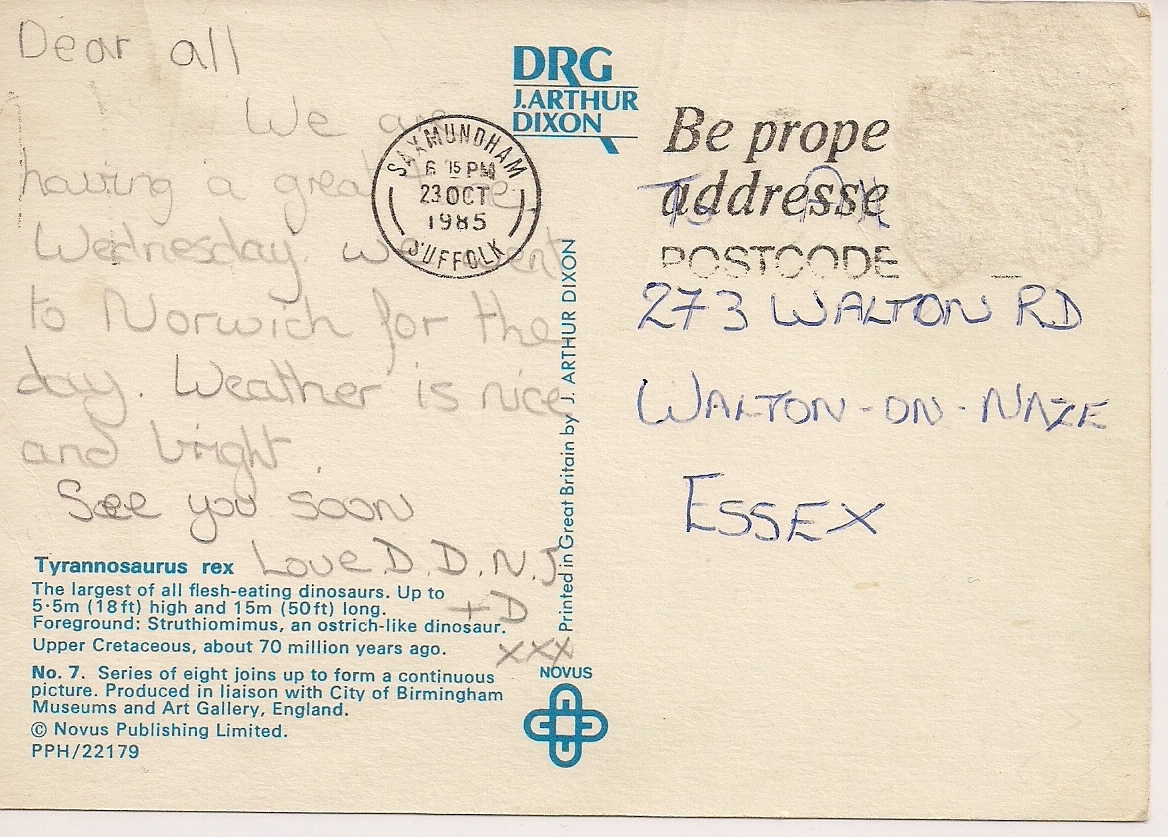 Dear all
We are
having a great time
Wednesday we went
to Norwich for the
day. Weather is nice
and bright.
See you soon
Love D.D.N.J
+D
xxx
Tyrannosaurus rex
The largest of all flesh-eating dinosaurs. Up to
5·5m (18ft) high and 15m (50ft) long.
Foreground: Struthiomimus, an ostrich-like dinosaur.
Upper Cretaceous, about 70 million years ago.
No. 7. Series of eight joins up to form a continuous
picture. Produced in liaison with City of Birmingham
Museums and Art Gallery, England.
© Novus Publishing Limited.
PPH/22179
DRG
J.ARTHUR
DIXON
SAXMUNDHAM
6 15 PM
23 OCT
1985
SUFFOLK
Printed in Great Britain by J. ARTHUR DIXON
NOVUS
Be prope
addresse
POSTCODE
To All
273 WALTON RD
WALTON-ON-NAZE
ESSEX